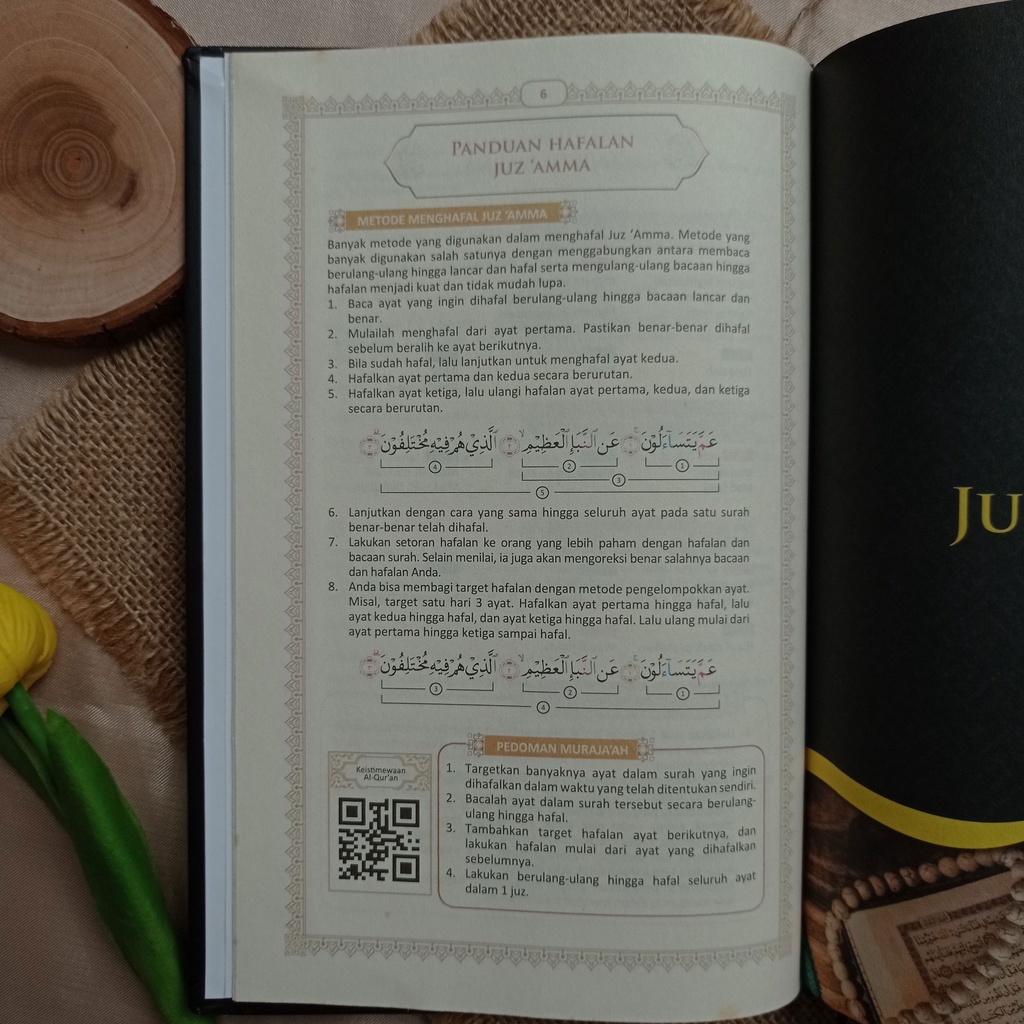 6
PANDUAN HAFALAN
JUZ ‘AMMA
METODE MENGHAFAL JUZ ‘AMMA
Banyak metode yang digunakan dalam menghafal Juz ‘Amma. Metode yang
banyak digunakan salah satunya dengan menggabungkan antara membaca
berulang-ulang hingga lancar dan hafal serta mengulang-ulang bacaan hingga
hafalan menjadi kuat dan tidak mudah lupa.
1. Baca ayat yang ingin dihafal berulang-ulang hingga bacaan lancar dan
benar.
2. Mulailah menghafal dari ayat pertama. Pastikan benar-benar dihafal
sebelum beralih ke ayat berikutnya.
3. Bila sudah hafal, lalu lanjutkan untuk menghafal ayat kedua.
4. Hafalkan ayat pertama dan kedua secara berurutan.
5. Hafalkan ayat ketiga, lalu ulangi hafalan ayat pertama, kedua, dan ketiga
secara berurutan.
عَمَّ يَتَسَاۤءَلُوْنَۚ ١ عَنِ النَّبَاِ الْعَظِيْمِۙ ٢ الَّذِيْ هُمْ فِيْهِ مُخْتَلِفُوْنَۗ ٣
4 2 1
3
5
6. Lanjutkan dengan cara yang sama hingga seluruh ayat pada satu surah
benar-benar telah dihafal.
7. Lakukan setoran hafalan ke orang yang lebih paham dengan hafalan dan
bacaan surah. Selain menilai, ia juga akan mengoreksi benar salahnya bacaan
dan hafalan Anda.
8. Anda bisa membagi target hafalan dengan metode pengelompokkan ayat.
Misal, target satu hari 3 ayat. Hafalkan ayat pertama hingga hafal, lalu
ayat kedua hingga hafal, dan ayat ketiga hingga hafal. Lalu ulang mulai dari
ayat pertama hingga ketiga sampai hafal.
عَمَّ يَتَسَاۤءَلُوْنَۚ ١ عَنِ النَّبَاِ الْعَظِيْمِۙ ٢ الَّذِيْ هُمْ فِيْهِ مُخْتَلِفُوْنَۗ ٣
3 2 1
4
Keistimewaan
Al-Qur'an
PEDOMAN MURAJA'AH
1. Targetkan banyaknya ayat dalam surah yang ingin
dihafalkan dalam waktu yang telah ditentukan sendiri.
2. Bacalah ayat dalam surah tersebut secara berulang-
ulang hingga hafal.
3. Tambahkan target hafalan ayat berikutnya, dan
lakukan hafalan mulai dari ayat yang dihafalkan
sebelumnya.
4. Lakukan berulang-ulang hingga hafal seluruh ayat
dalam 1 juz.
JU